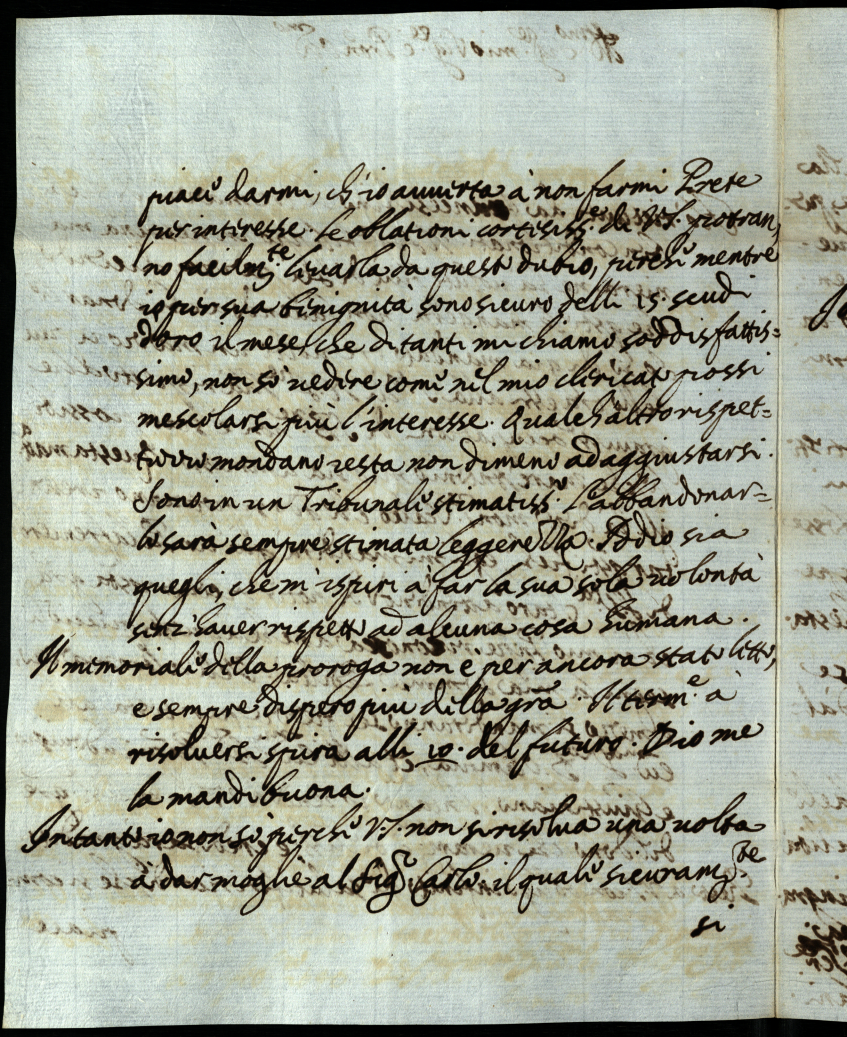 piace darmi, ch'io auuerta à non farmi Prete
per interesse. Le oblationi cortesiss.e di V.S. potran,
no facilm.te leuarla da questo dubio, perche mentre
io per sua benignità sono sicuro delli 15. scudi
d'oro il mese, che di tanti mi chiamo soddisfattis=
simo, non sò uedere come nel mio clericato possi
mescolarsi più l'interesse. Qualch'altro rispet=
tuccio mondano resta non dimeno ad aggiustarsi.
Sono in un Tribunale stimatiss.o L'abbandonar=
lo sarà sempre stimata leggerezza. Iddio sia
quegli, che m'ispiri a far la sua sola uolontà
senz'hauer rispetto ad alcuna cosa humana.
Il memoriale della proroga non è per ancora stato letto,
e sempre dispero più della grã. Il term.e à
risoluersi spira alli 10. del futuro. Dio me
la mandi buona.
Intanto io non sò, perche V.S. non si risolua una uolta
à dar moglie al Sig.r Carlo, il quale sicuram.te
si